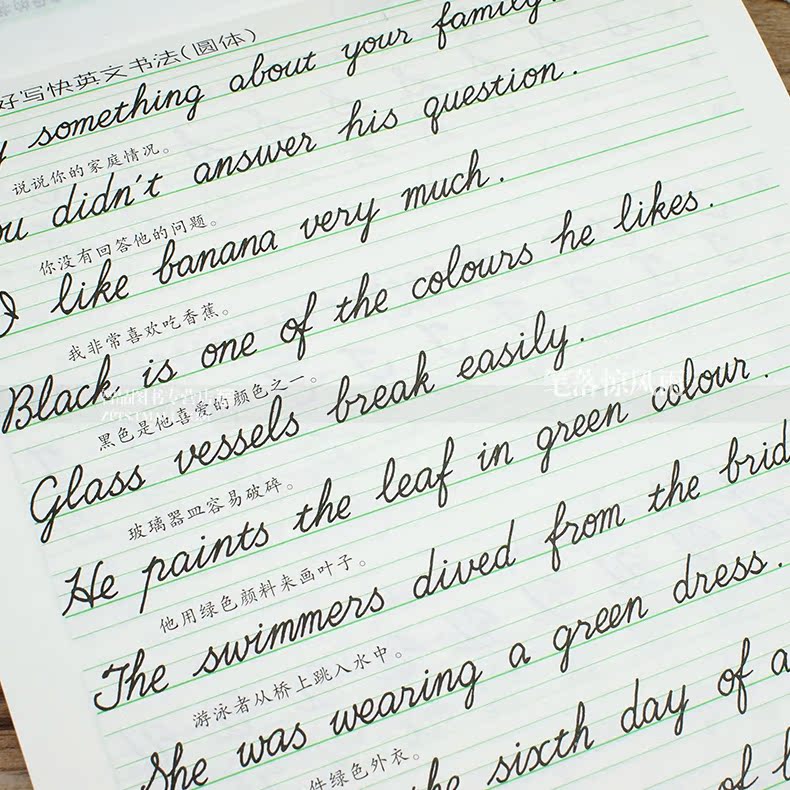 好写快英文书法(圆体)
something about your family.
说说你的家庭情况。
didn't answer his question.
你没有回答他的问题。
I like banana very much.
我非常喜欢吃香蕉。
Black is one of the colours he likes.
黑色是他喜爱的颜色之一。
Glass vessels break easily.
玻璃器皿容易破碎。
He paints the leaf in green colour.
他用绿色颜料来画叶子。
The swimmers dived from the brid
游泳者从桥上跳入水中。
She was wearing a green dress.
件绿色外衣。
the sixth day of a
of